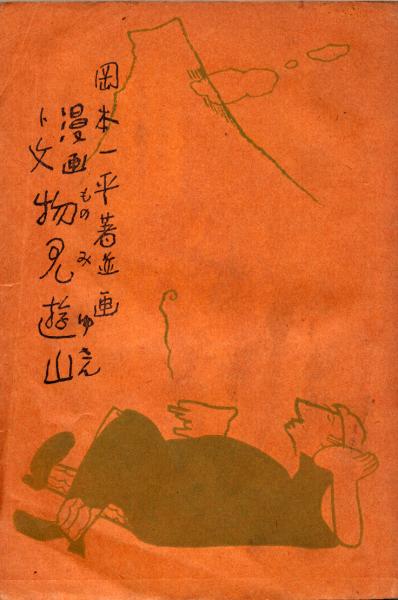 岡本一平著並画
漫画ト文
物見遊山
ものみゆさん